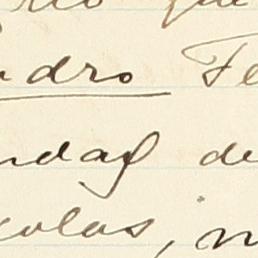 que
dro Fe
ndad de
colas, n